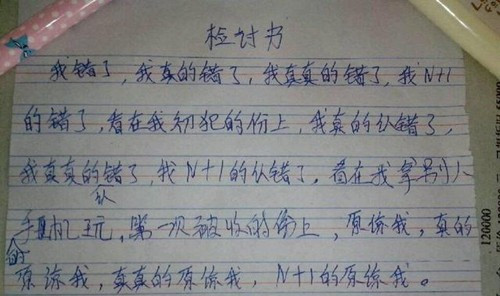 检讨书
我错了,我真的错了,我真真的错了,我N+1
的错了,看在我初犯的份上,我真的认错了,
我真真的认错了,我N+1的认错了。看在我拿别人
的手机玩,第一次被收的份上,原谅我,真的
原谅我,真真的原谅我,N+1的原谅我。
120000